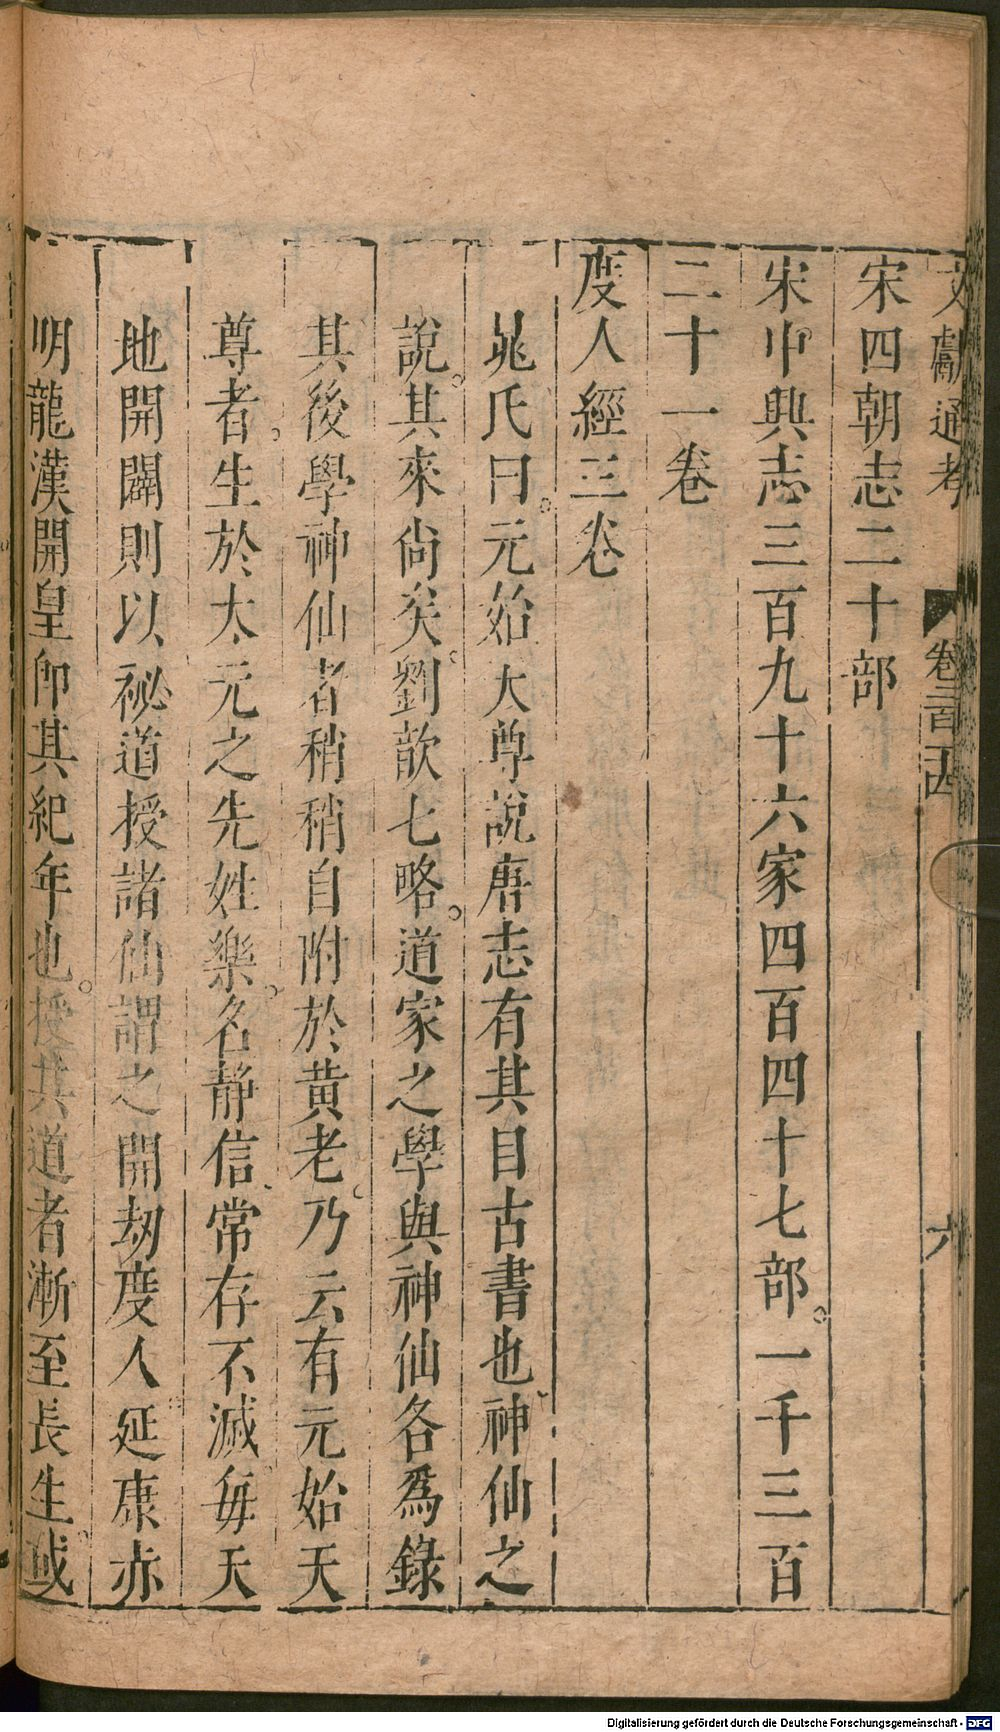 文獻通考 卷二百二十四 六
宋四朝志二十部
宋中興志三百九十六家四百四十七部。一千三百
二十一卷
度人經三卷
晁氏曰。元始大尊說唐志有其目古書也神仙之
說。其來尙矣。劉歆七略。道家之學與神仙各爲錄
其後學神仙者稍稍自附於黃老。乃云有元始天
尊者。生於太元之先姓樂。名静信常存不滅每天
地開闢則以祕道授諸仙謂之開劫度人延康赤
明龍漢開皇卽其紀年也。授其道者漸至長生。或
Digitalisierung gefördert durch die Deutsche Forschungsgemeinschaft - DFG